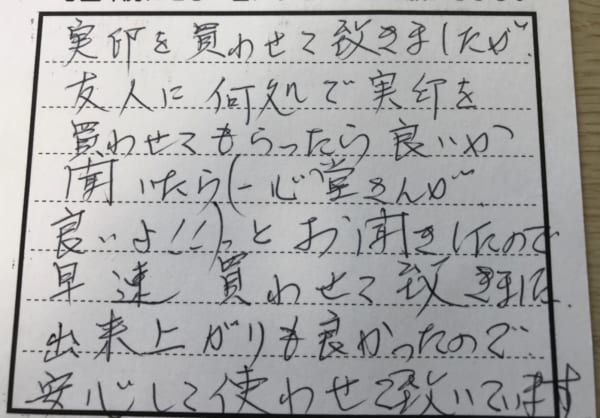 実印を買わせて致きましたが、
友人に何処で実印を
買わせてもらったら良いか
聞いたら(一心堂さんが
良いよ!!)っとお聞きしたので
早速買わせて致きました。
出来上がりも良かったので
安心して使わせて致いています